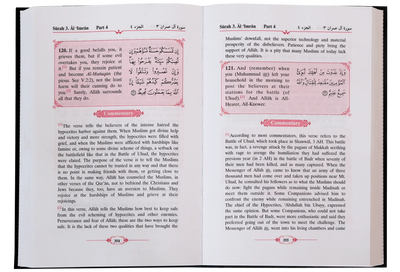 Sûrah 3. Âl-'Imrân Part 4 الجزء ٤ سورة آل عمران ٣
120. If a good befalls you, it
grieves them, but if some evil
overtakes you, they rejoice at
it. But if you remain patient
and become Al-Muttaqûn (the
pious. See V.2:2), not the least
harm will their cunning do to
you. Surely, Allâh surrounds
all that they do.
Commentary
The verse tells the believers of the intense hatred the
hypocrites harbor against them. When Muslims get divine help
and victory and more strength, the hypocrites were filled with
grief, and when the Muslims were afflicted with hardships like
famine or, owing to some divine scheme of things, a setback on
the battlefield like that in the Battle of Uhud, the hypocrites
were elated. The purpose of the verse is to tell the Muslims
that the hypocrites cannot be trusted in any way and that there
is no point in making friends with them, or getting close to
them. In the same way, Allâh has counseled the Muslims, in
other verses of the Qur'ân, not to befriend the Christians and
Jews because they, too, have an aversion to Muslims. They
rejoice at the hardships of Muslims and grieve at their
rejoicing.
In this verse, Allâh tells the Muslims how best to keep safe
from the evil scheming of hypocrites and other enemies.
Perseverance and fear of Allâh; these are the two ways to keep
safe. It is the lack of these two qualities that have brought the
204
Sûrah 3. Âl-'Imrân Part 4 الجزء ٤ سورة آل عمران ٣
Muslims' downfall, not the superior technology and material
prosperity of the disbelievers. Patience and piety bring the
support of Allâh. It is a pity that many Muslims of today lack
these very qualities.
121. And (remember) when
you (Muhammad ﷺ) left your
household in the morning to
post the believers at their
stations for the battle (of
Uhud). And Allâh is All-
Hearer, All-Knower.
Commentary
According to most commentators, this verse refers to the
Battle of Uhud, which took place in Shawwal, 3 AH. This battle
was, in fact, a revenge attack by the pagans of Makkah seething
with rage to avenge the humiliation they had suffered the
previous year (in 2 AH) in the battle of Badr when seventy of
their men had been killed, and as many captured. When the
Messenger of Allâh ﷺ came to know that an army of three
thousand men had come over and taken up positions near Mt.
Uhud, he consulted his followers as to what the Muslims should
do now: fight the pagans while remaining inside Madinah or
meet them outside it. Some Companions advised him to
confront the enemy while remaining entrenched in Madinah.
The chief of the Hypocrites, 'Abdullah bin Ubayy, expressed
the same opinion. But some Companions, who could not take
part in the Battle of Badr, were more enthusiastic and said they
preferred going out of the town to meet the challenge. The
Messenger of Allâh ﷺ went into his living chambers and came
205